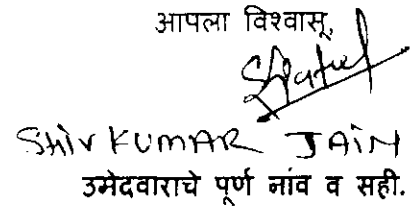 आपला विश्वासू,
SHIV KUMAR JAIN
उमेदवाराचे पूर्ण नांव व सही.